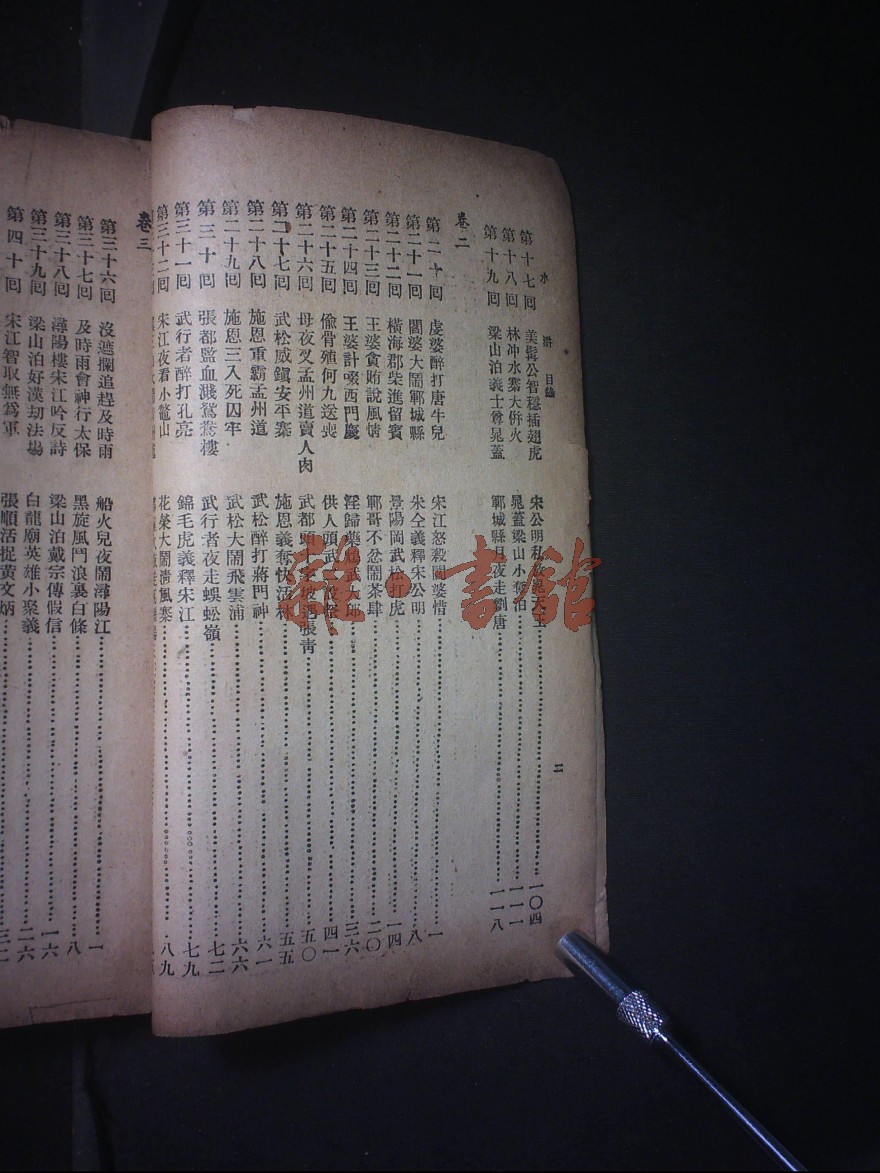 水 滸 目錄
第十七回 美髯公智穩插翅虎 宋公明私放晁天王 一〇四
第十八回 林沖水寨大併火 晁蓋梁山小奪泊 一一一
第十九回 梁山泊義士尊晁蓋 鄆城縣月夜走劉唐 一一八
卷二
第二十回 虔婆醉打唐牛兒 宋江怒殺閻婆惜 一
第二十一回 閻婆大鬧鄆城縣 朱仝義釋宋公明 八
第二十二回 橫海郡柴進留賓 景陽岡武松打虎 一四
第二十三回 王婆貪賄說風情 鄆哥不忿鬧茶肆 二〇
第二十四回 王婆計啜西門慶 淫婦藥 武大郎 三六
第二十五回 偷骨殖何九送喪 供人頭武 設祭 四一
第二十六回 母夜叉孟州道賣人肉 武都頭十字坡遇張青 五〇
第二十七回 武松威鎮安平寨 施恩義奪快活林 五五
第二十八回 施恩重霸孟州道 武松醉打蔣門神 六一
第二十九回 施恩三入死囚牢 武松大鬧飛雲浦 六六
第三十回 張都監血濺鴛鴦樓 武行者夜走蜈蚣嶺 七二
第三十一回 武行者醉打孔亮 錦毛虎義釋宋江 七九
第三十二回 宋江夜看小鰲山 花榮大鬧清風寨 八九
卷三
第三十六回 沒遮攔追趕及時雨 船火兒夜鬧潯陽江 一
第三十七回 及時雨會神行太保 黑旋風鬥浪裏白條 八
第三十八回 潯陽樓宋江吟反詩 梁山泊戴宗傳假信 一六
第三十九回 梁山泊好漢劫法場 白龍廟英雄小聚義 二六
第四十回 宋江智取無為軍 張順活捉黃文炳 三二
二
雜·書館